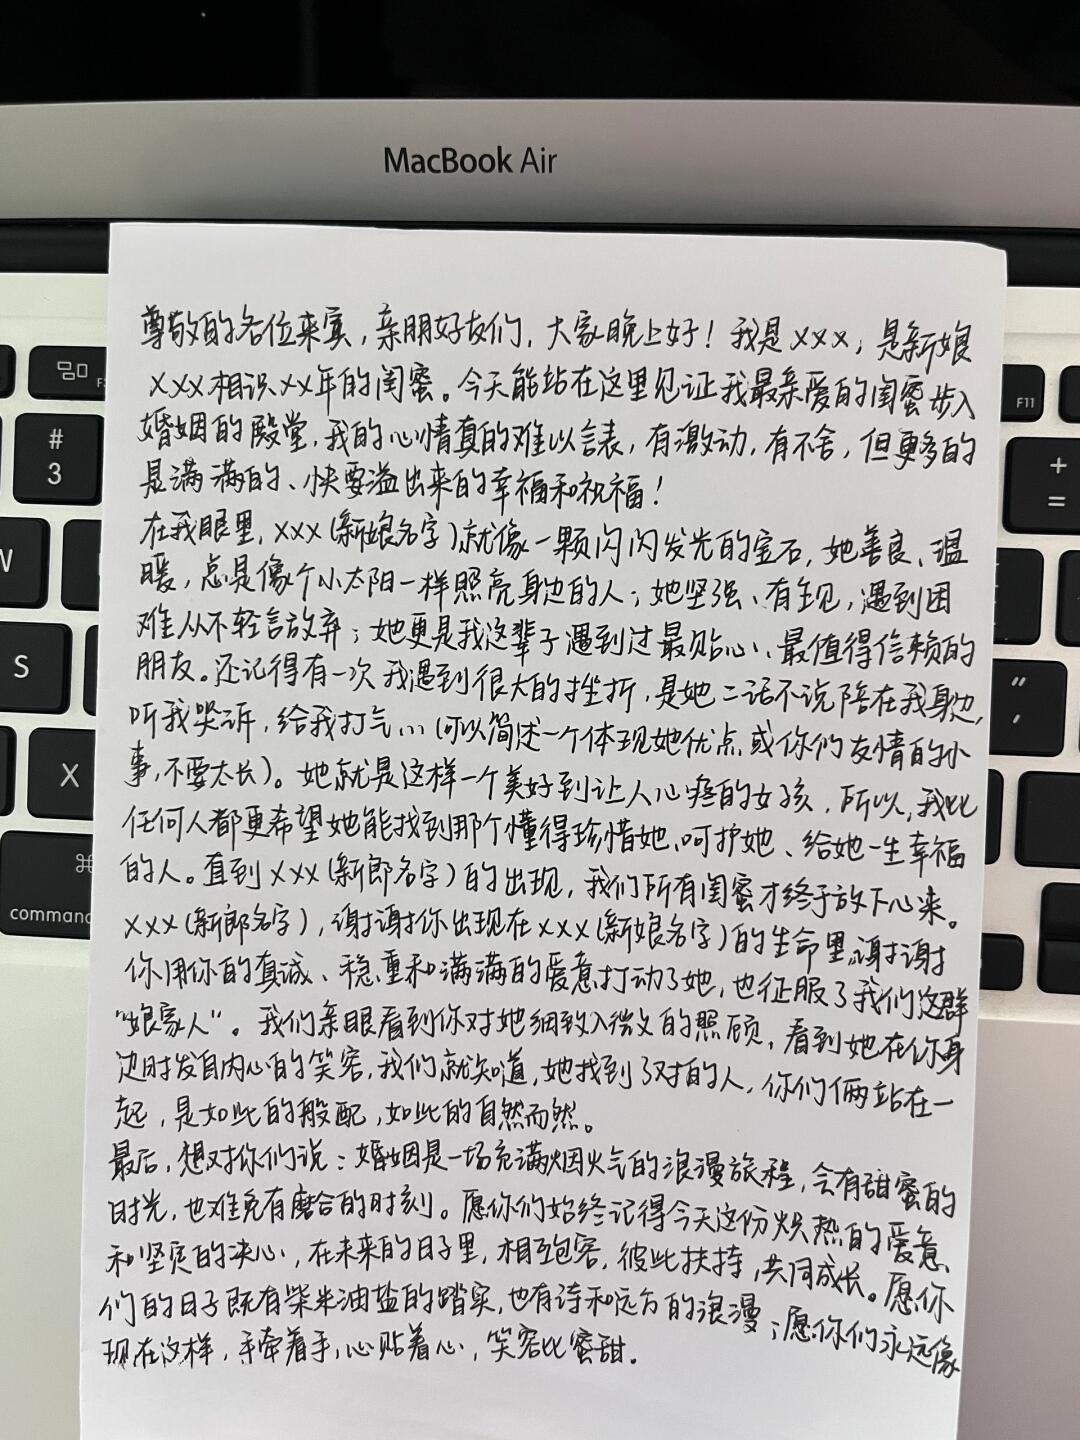 MacBook Air
F11
#
3
+
=
W
S
"
,
X
⌘
command
尊敬的各位来宾，亲朋好友们，大家晚上好！我是XXX，是新娘
XXX相识XX年的闺蜜。今天能站在这里见证我最亲爱的闺蜜步入
婚姻的殿堂，我的心情真的难以言表，有激动，有不舍，但更多的
是满满的、快要溢出来的幸福和祝福！
在我眼里，XXX(新娘名字)就像一颗闪闪发光的宝石，她善良、温
暖，总是像个小太阳一样照亮身边的人；她坚强、有主见，遇到困
难从不轻言放弃；她更是我这辈子遇到过最贴心、最值得信赖的
朋友。还记得有一次我遇到很大的挫折，是她二话不说陪在我身边，
听我哭诉，给我打气…(可以简述一个体现她优点或你们友情的小
事，不要太长)。她就是这样一个美好到让人心疼的女孩，所以，我比
任何人都更希望她能找到那个懂得珍惜她、呵护她、给她一生幸福
的人。直到XXX(新郎名字)的出现，我们所有闺蜜才终于放下心来。
XXX(新郎名字)，谢谢你出现在XXX(新娘名字)的生命里，谢谢
你用你的真诚、稳重和满满的爱意打动了她，也征服了我们这群
“娘家人”。我们亲眼看到你对她细致入微的照顾，看到她在你身
边时发自内心的笑容，我们就知道，她找到了对的人，你们俩站在一
起，是如此的般配，如此的自然而然。
最后，想对你们说：婚姻是一场充满烟火气的浪漫旅程，会有甜蜜的
时光，也难免有磨合的时刻。愿你们始终记得今天这份炽热的爱意
和坚定的决心，在未来的日子里，相互包容，彼此扶持，共同成长。愿你
们的日子既有柴米油盐的踏实，也有诗和远方的浪漫；愿你们永远像
现在这样，手牵着手，心贴着心，笑容比蜜甜.